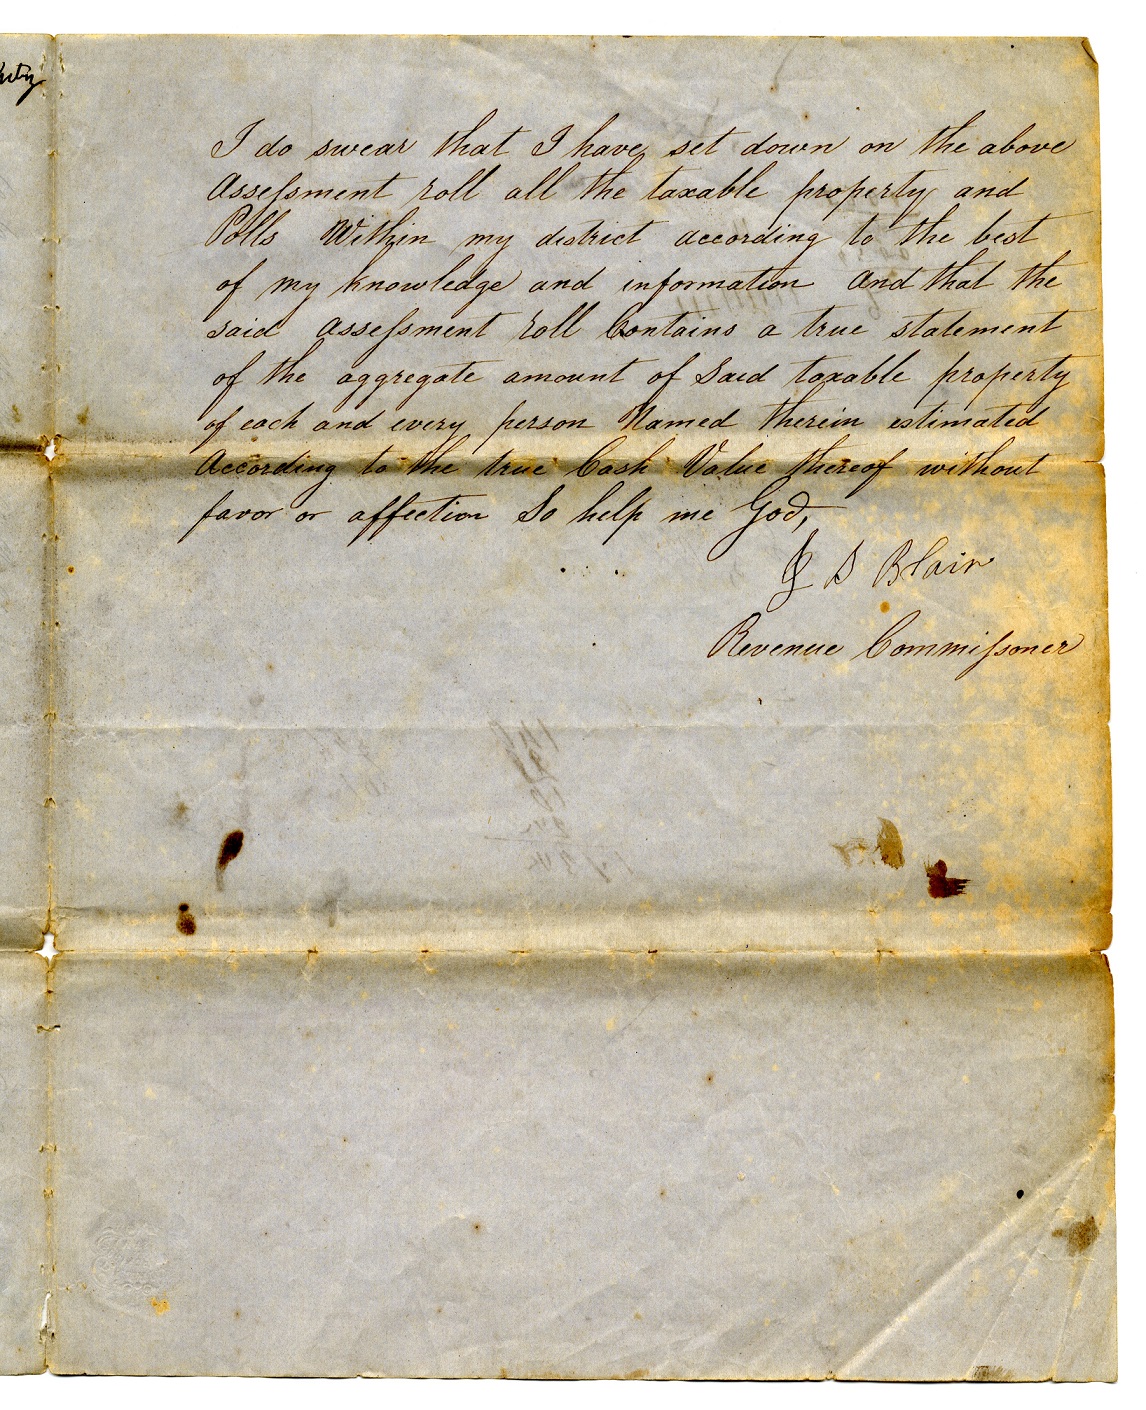 I do swear that I have set down on the above
Assessment roll all the taxable property and
Polls Within my district according to the best
of my knowledge and information And that the
said Assessment roll Contains a true statement
of the aggregate amount of Said taxable property
of each and every person Named therein estimated
According to the true Cash Value thereof without
favor or affection So help me God,
J S Blair
Revenue Commissoner